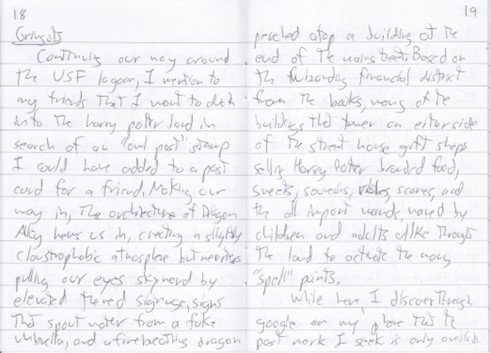 18
Gringots
Continuing our way around
the USF lagoon, I mention to
my friends that I want to duck
into the harry potter land in
search of an "owl post" stamp
I could have added to a post
card for a friend. Making our
way in, the architecture of Diagon
Alley hems us in, creating a slightly
claustrophobic atmosphere but
pulling our eyes skyward by
elevated themed signage, signs
that spout water from a fake
umbrella, and a fire breathing dragon
19
perched atop a building at the
end of the main street. Based on
the wizarding financial district
from the books, many of the
buildings that tower on either side
of the street house gift shops
selling Harry Potter branded food,
sweets, souvenirs, robes, scarves, and
the all import wands, waved by
children and adults alike through
the land to activate the many
"spell" points.
While here, I discover through
google on my phone that the
post mark I seek is only available